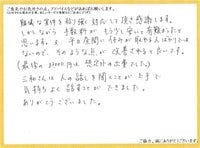 ご意見やお気付きの点、アドバイスなどがあればお願いします。
難儀な案件を粘り強く対応して頂き感謝します。
しかしながら手数料がもう少し安いと有難かったと
思います。又、平日昼間に休みが取れる人ばかりとは
ないので、そのような点が改善されると良いです。
(最後の28000円は想定外の出費でした。)
三和さんは人の話しを聞くことが上手で
気持ちよく話すことができました
ありがとうございました。
ご協力、誠にありがとうございます。